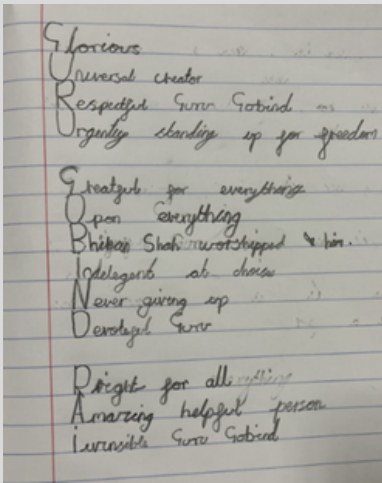 Glorious
Universal creator
Respectful Guru Gobind
Urgently standing up for freedom
Greatful for everything
Upon everything
Bhikan Shah worshipped him.
Indelegent at choise
Never giving up
Devotegul Guru
Dright for all
Amazing helpful person
Iuvinsible Guru Gobind